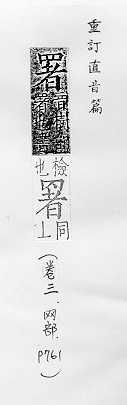 重訂直音篇
署
檢也
署同上
(卷三.网部.P761)